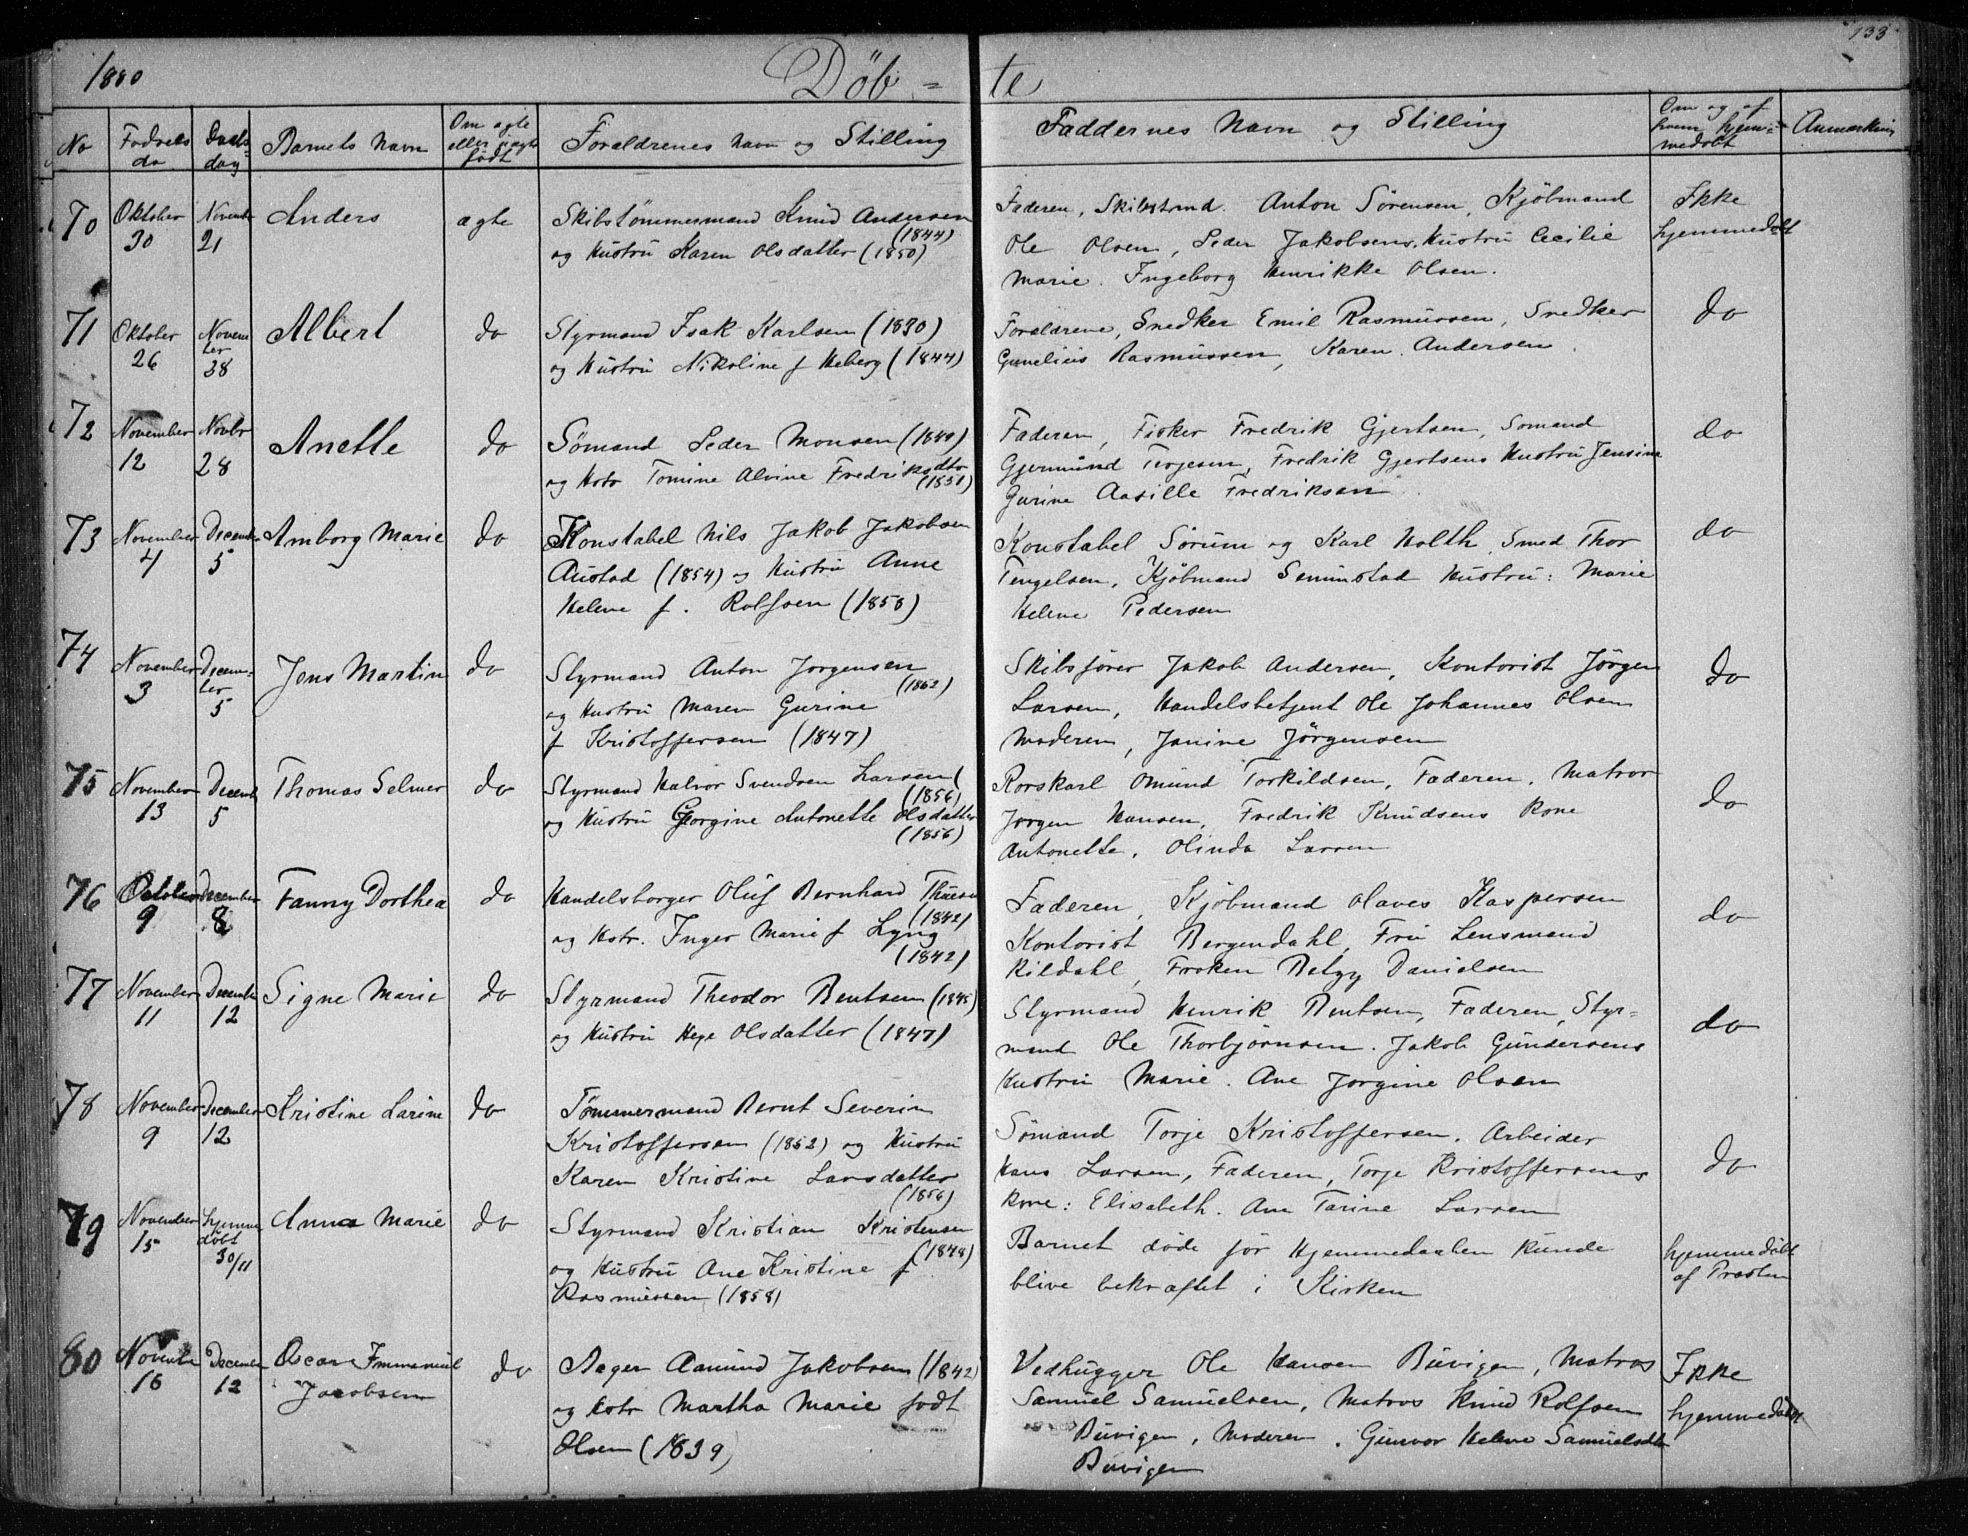 1880
Döb = te
133
No
Fødsels da
Daabs dag
Barnets Navn
Om ægte eller uægte født
Forældrenes Navn og Stilling
Faddernes Navn og Stilling
Om og af hvem hjem- medøbt
Anmærkning
70 Oktober 30 November 21 Anders ægte
Skibstømmermand Knud Andersen (1844)
og Hustru Karen Olsdatter (1850)
Faderen, Skibstmd. Anton Sørensen, Kjöbmand
Ole Olsen, Peder Jakobsens Hustru Cecilie
Marie. Ingeborg Henrikke Olsen.
Ikke hjemmedøbt
71 Oktober 26 November 28 Albert do
Styrmand Isak Karlsen (1830)
og Hustru Nikoline f Heberg (1844)
Forældrene, Snedker Emil Rasmussen, Snedker
Gunelius Rasmussen, Karen Andersen
do
72 November 12 Novbr 28 Anette do
Sömand Peder Monsen (1849)
og Hstr Tomine Alvine Fredriksdtr (1851)
Faderen, Fisker Fredrik Gjertsen, Sömand
Gjermund Terjesen, Fredrik Gjertsens Hustru Jensine
Gurine Aasille Fredriksen
do
73 November 4 December 5 Amborg Marie do
Konstabel Nils Jakob Jakobsen
Austad (1854) og Hustru Anne
Helene f. Rolfsen (1858)
Konstabel Sörum og Karl Holth, Smed Thor
Tengelsen, Kjöbmand Semmstad Hustru: Marie
Helene Pedersen
do
74 November 3 December 5 Jens Martin do
Styrmand Anton Jorgensen (1862)
og Hustru Maren Gurine
f Kristoffersen (1847)
Skibsförer Jakob Andersen, Kontorist Jörgen
Larsen, Handelsbetjent Ole Johannes Olsen
Moderen, Janine Jörgensen
do
75 November 13 Decemb 5 Thomas Selmer do
Styrmand Halvor Svendsen Larsen (1856)
og Hustru Georgine Antonette Olsdatter (1856)
Rorskarl Omund Torkildsen, Faderen, Matros
Jørgen Hansen, Fredrik Knudsens Kone
Antonette, Olinda Larsen
do
76 October 9 December 8 Fanny Dorthea do
Handelsborger Oluf Bernhard Thuesen (1842)
og Hstr. Inger Marie f Lyng (1842)
Faderen, Kjöbmand Olaves Kaspersen
Kontorist Bergendahl, Fru Lensmand
Kildahl, Froken Betzy Danielsen
do
77 November 11 December 12 Signe Marie do
Styrmand Theodor Bentsen (1845)
og Hustru Hege Olsdatter (1847)
Styrmand Henrik Bentsen, Faderen, Styr=
mand Ole Thorbjørnsen. Jakob Gundersens
Hustru Marie. Ane Jorgine Olsen
do
78 November 9 December 12 Kristine Larine do
Tömmermand Bernt Severin
Kristoffersen (1852) og Hustru
Karen Kristine Larsdatter (1856)
Sömand Torje Kristoffersen. Arbeider
Hans Larsen, Faderen, Torje Kristoffersens
Kone: Elisabeth. Ane Tarine Larsen
do
79 November 15 hjemme døbt 30/11 Anna Marie do
Styrmand Kristian Kristensen (1848)
og Hustru Ane Kristine f
Rasmussen (1858)
Barnet døde før Hjemmedaaben kunde
blive bekræftet i Kirken
hjemmedøbt af Præsten
80 November 16 December 12 Oscar Immanuel Jacobsen do
Bager Aamund Jakobsen (1842)
og Hstr Martha Marie født
Olsen (1839)
Vedhugger Ole Hansen Buvigen, Matros
Samuel Samuelsen, Matros Knud Rolfsen
Buvigen, Moderen, Gunvor Helene Samuelsdtr
Buvigen
Ikke hjemmedøbt